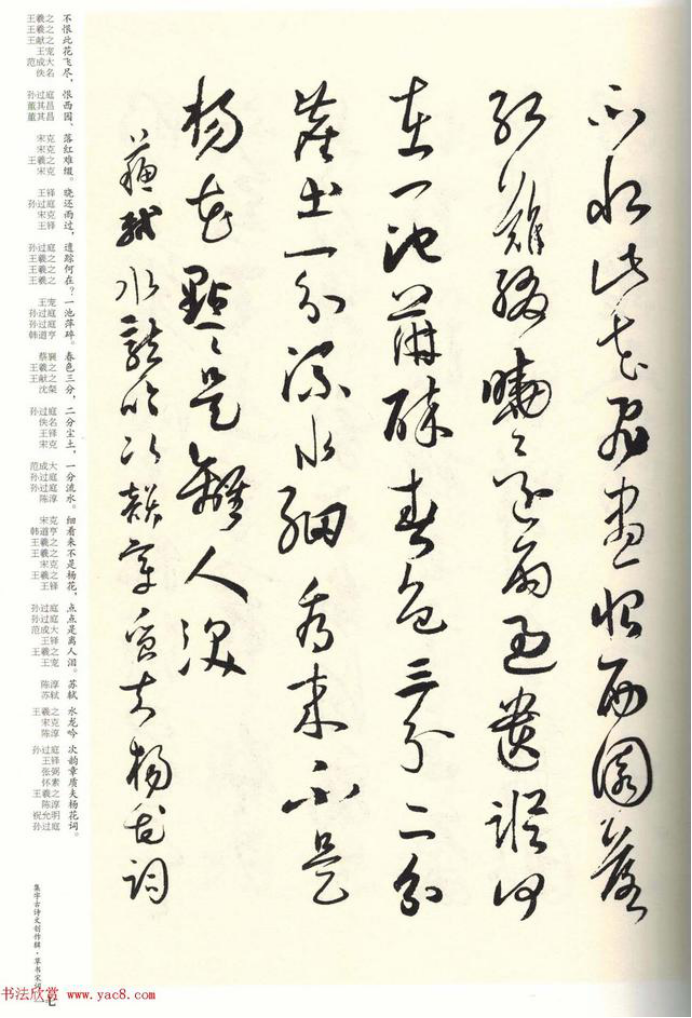 不恨此花飛盡恨西園落
紅難綴曉還雨過遺蹤何
在一池萍碎春色三分二分
塵土一分流水細看來不是
楊花點〻是離人淚
蘇軾水龍吟次韻章質夫楊花詞
王羲之 不
王羲之 恨
王献之 此
王宠 花
范成大 飞
佚名 尽，
孙过庭 恨
董其昌 西
董其昌 园、
宋克 落
宋克 红
王羲之 难
宋克 缀。
王铎 晓
孙过庭 还
宋克 雨
王铎 过，
孙过庭 遗
王羲之 踪
王羲之 何
王羲之 在？
王宠 一
孙过庭 池
孙过庭 萍
韩道亨 碎。
蔡襄 春
王羲之 色
王献之 三
沈粲 分，
孙过庭 二
佚名 分
王铎 尘
宋克 土，
范成大 一
孙过庭 分
孙过庭 流
陈淳 水。
宋克 细
韩道亨 看
王羲之 来
王羲之 不
宋克 是
王羲之 杨
王铎 花，
孙过庭 点
孙过庭 点
范成大 是
王铎 离
王羲之 人
王宠 泪。
陈淳 苏
苏轼 轼
王羲之 水
宋克 龙
陈淳 吟
孙过庭 次
王铎 韵
张弼 章
怀素 质
王羲之 夫
陈淳 杨
祝允明 花
孙过庭 词。
集字古诗文创作辑·草书宋词
七
书法欣赏 www.yac8.com